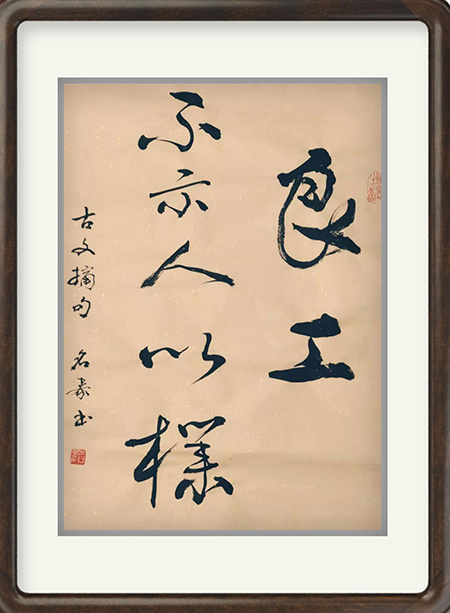 良工
不示人以樸
古文摘句 名 书